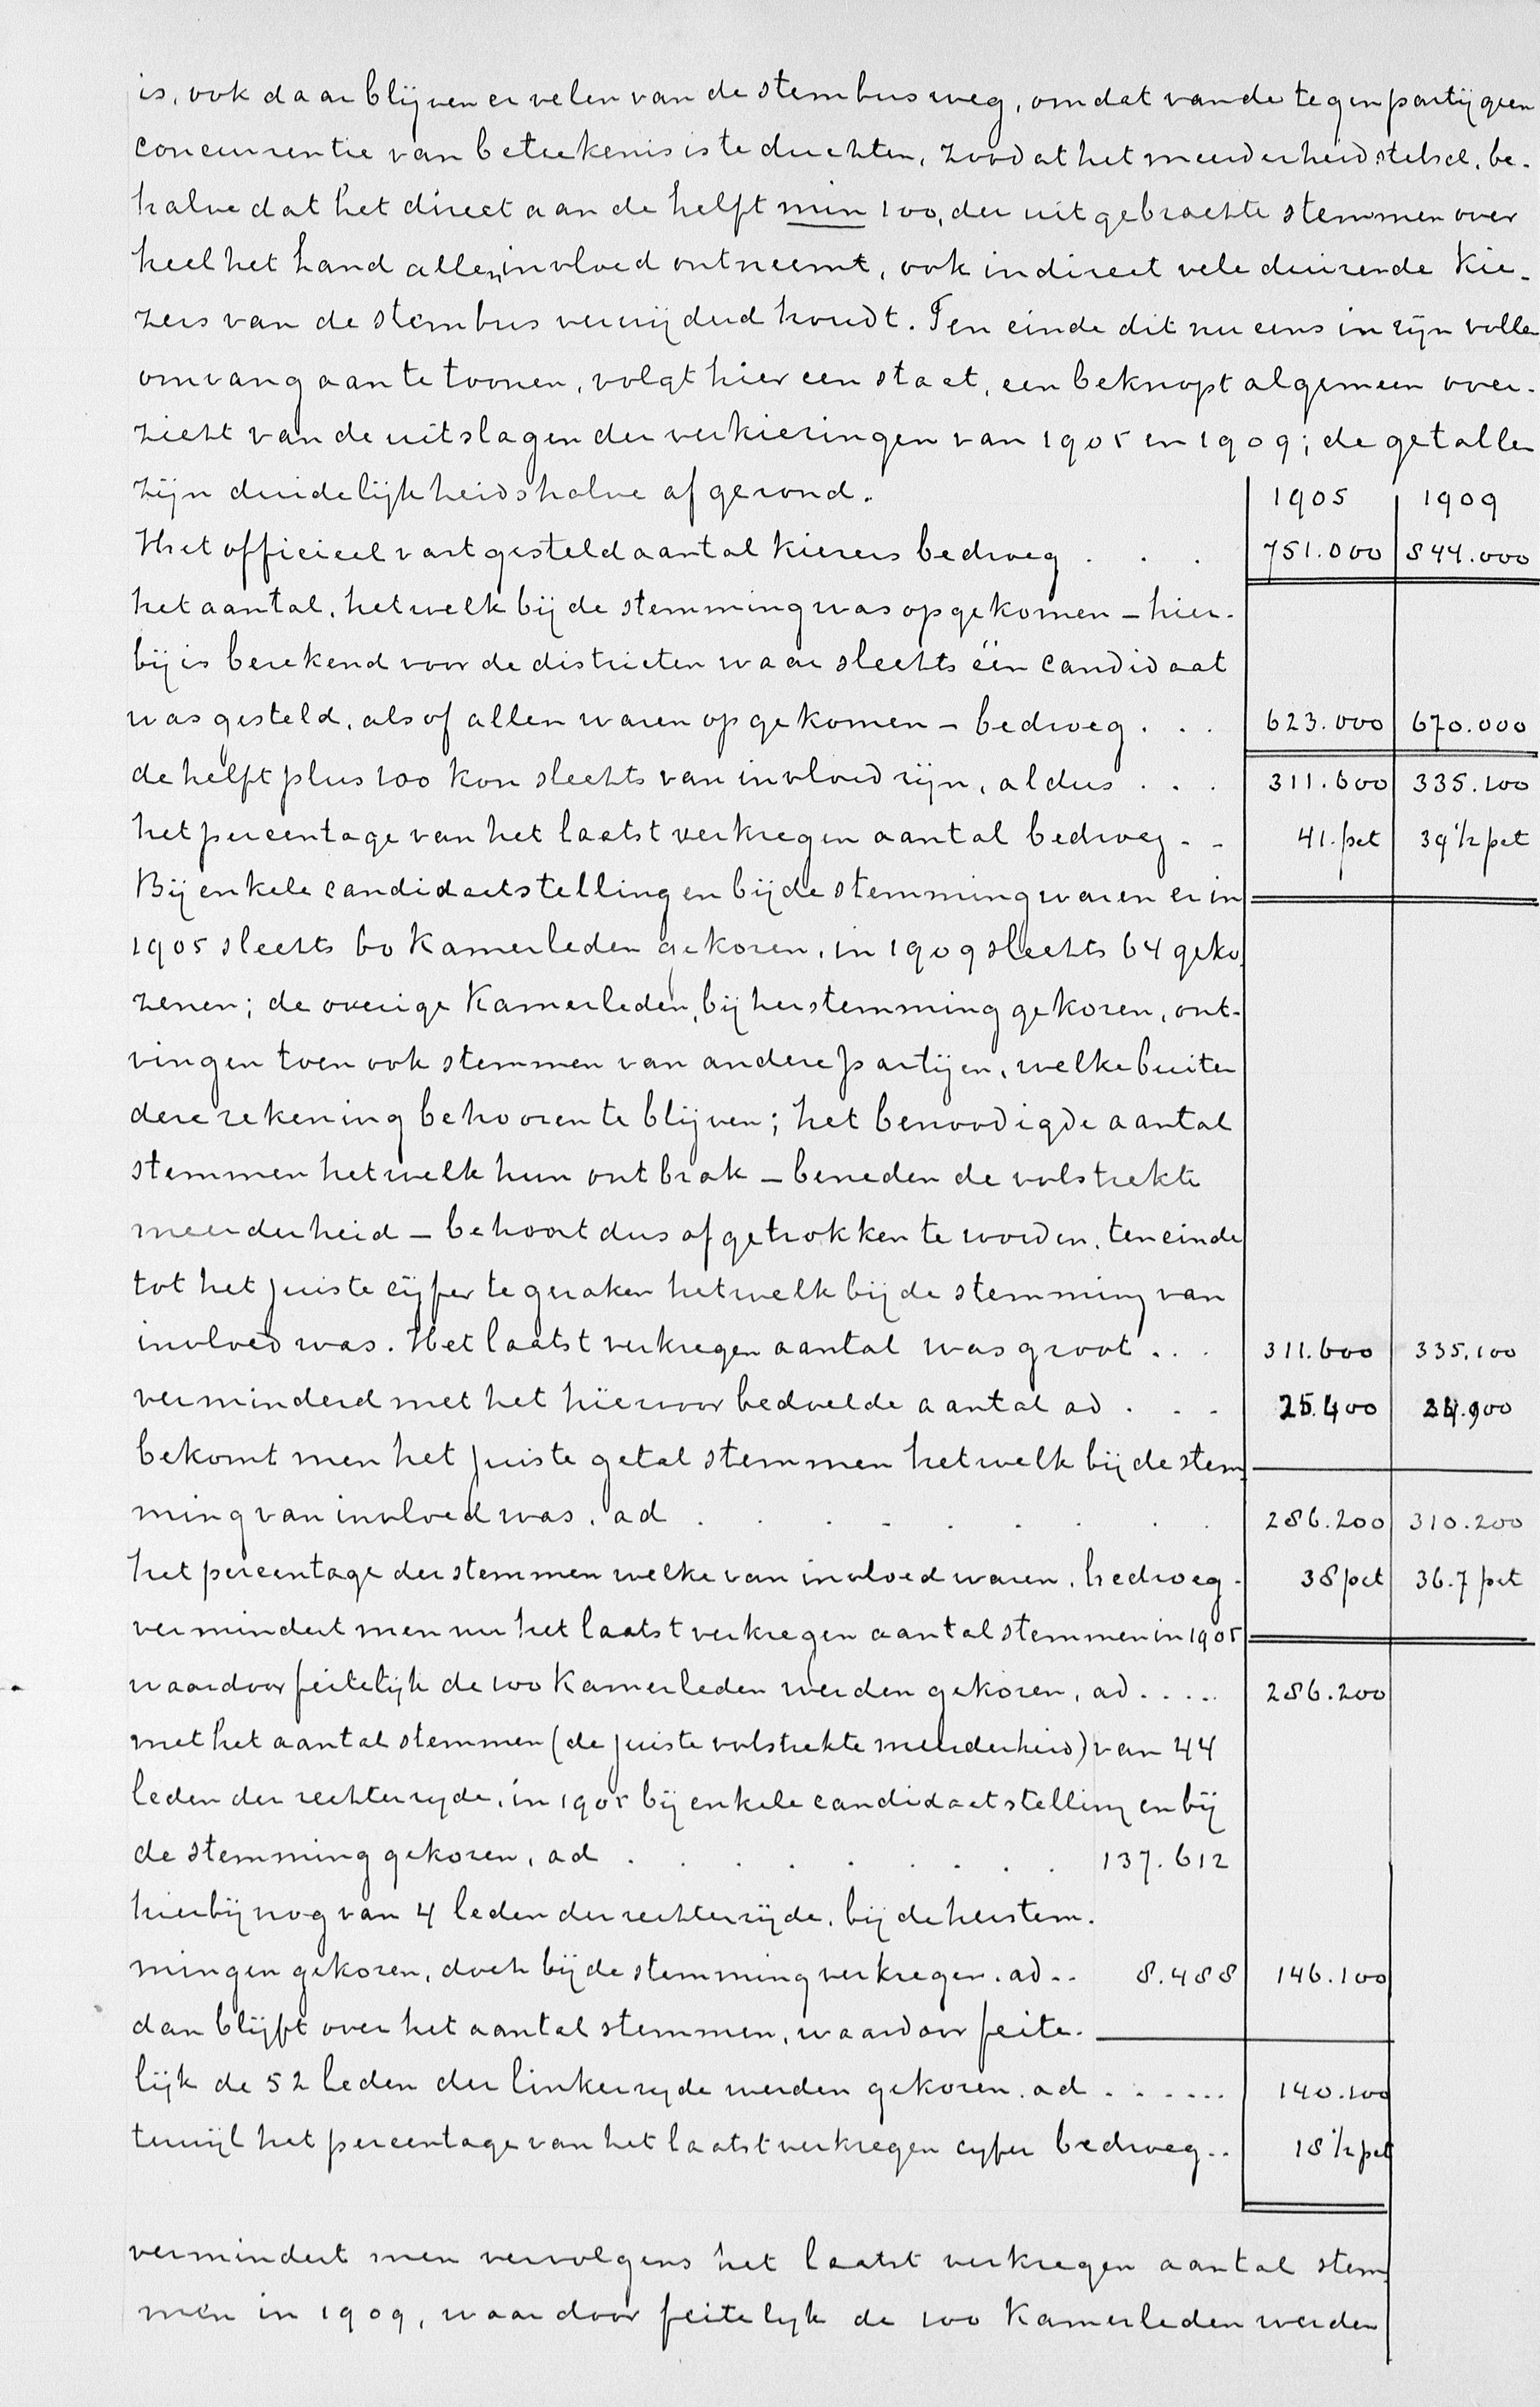 is, ook daar blijven er velen van de stembus weg, omdat van de tegenpartij geen
concurrentie van beteekenis is te duchten, zoodat het meerderheidstelsel, be-
halve dat het direct aan de helft min 100, der uitgebrachte stemmen over
heel het land allen invloed ontneemt, ook indirect vele duizende kie-
zers van de stembus verwijderd houdt. Ten einde dit nu eens in zijn vollen
omvang aan te toonen, volgt hier een staat, een beknopt algemeen over-
zicht van de uitslagen der verkiezingen van 1905 en 1909; de getallen
zijn duidelijkheidshalve afgerond. 1905 1909
Het officieel vastgesteld aantal kiezers bedroeg . . . 751.000 844.000
het aantal, hetwelk bij de stemming was opgekomen – hier-
bij is berekend voor de districten waar slechts één candidaat
was gesteld, alsof allen waren opgekomen – bedroeg . . . 623.000 670.000
de helft plus 100 kon slechts van invloed zijn, aldus . . . 311.600 335.100
het percentage van het laatst verkregen aantal bedroeg . . 41. pct 39 1/2 pct
Bij enkele candidaatstelling en bij de stemming waren er in
1905 slechts 60 Kamerleden gekozen, in 1909 slechts 64 geko-
zenen; de overige Kamerleden, bij herstemming gekozen, ont-
vingen toen ook stemmen van andere partijen, welke buiten
deze rekening behooren te blijven; het benoodigde aantal
stemmen hetwelk hun ontbrak – beneden de volstrekte
meerderheid – behoort dus afgetrokken te worden, ten einde
tot het juiste cijfer te geraken hetwelk bij de stemming van
invloed was. Het laatst verkregen aantal was groot . . . 311.600 335.100
verminderd met het hiervoor bedoelde aantal ad . . . 25.400 24.900
bekomt men het juiste getal stemmen hetwelk bij de stem-
ming van invloed was, ad . . . . . . . . . 286.200 310.200
het percentage der stemmen welke van invloed waren, bedroeg . 38 pct 36.7 pct
vermindert men nu het laatst verkregen aantal stemmen in 1905
waardoor feitelijk de 100 Kamerleden werden gekozen, ad . . . . . 286.200
met het aantal stemmen (de juiste volstrekte meerderheid) van 44
leden der rechterzyde, in 1905 bij enkele candidaatstelling en bij
de stemming gekozen, ad . . . . . . . . . 137.612
hierbij nog van 4 leden der rechterzijde, bij de herstem-
mingen gekozen, doch bij de stemming verkregen, ad . . 8.488 146.100
dan blijft over het aantal stemmen, waardoor feite-
lijk de 52 leden der linkerzyde werden gekozen, ad . . . . . . 140.100
terwijl het percentage van het laatst verkregen cyfer bedroeg . . 18 1/2 pct
vermindert men vervolgens het laatst verkregen aantal stem-
men in 1909, waardoor feitelyk de 100 Kamerleden werden